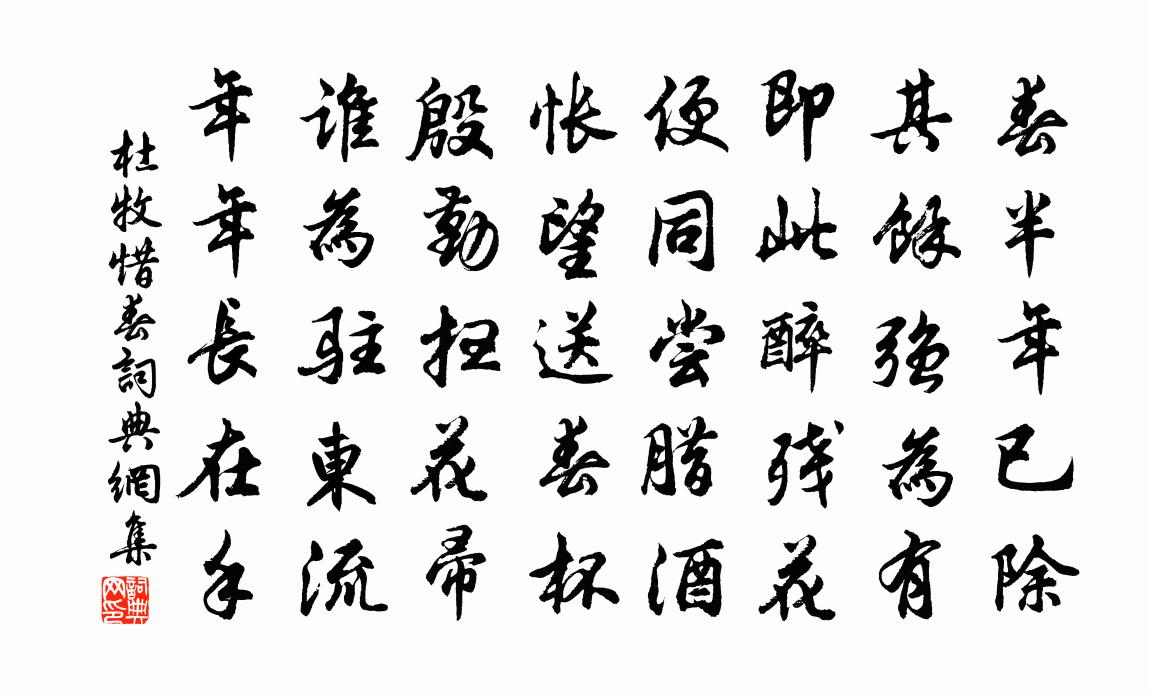 春半年已除
其餘強為有
即此醉残花
便同尝腊酒
怅望送春杯
殷勤扫花帚
谁為駐東流
年年長在手
杜牧惜春詞典網集
詞典网印